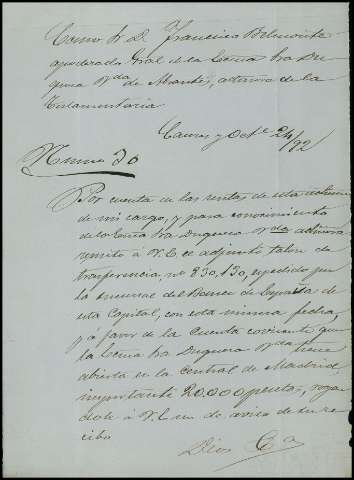 Excmo Sr D. Francisco Belmonte
apoderado Gral de la Excma Sra Du-
quesa Vda de Abrantes, admora de la
Testamentaria
Caceres y Octe 24/92
Numero 30
Por cuenta de las rentas de esta
de mi cargo, y para conocimiento
de la Excma Sra Duquesa Vda admora
remito á V.E. el adjunto talon de
trasferencia, nº 830,130, espedido por
la sucursal del Banco de España de
esta Capital, con esta misma fecha,
y á favor de la cuenta corriente que
la Excma Sra Duquesa Vda tiene
abierta en la central de Madrid,
importante 20.000 pesetas, rogan
dole á V.E. me de aviso de su re
cibo
Dios Ga